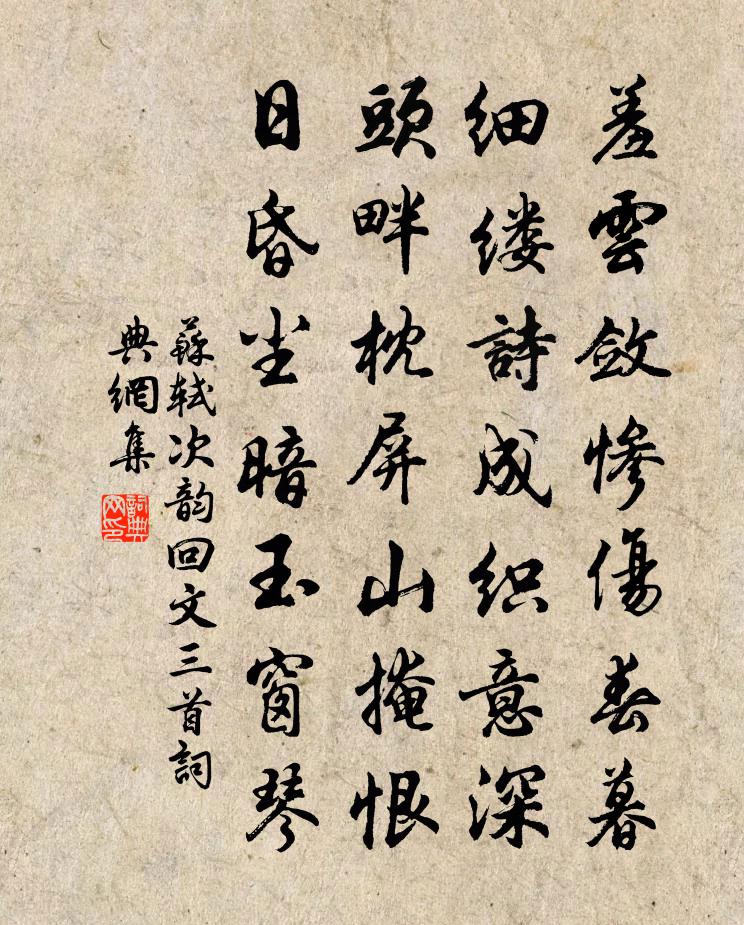 羞雲斂慘傷春暮
细缕詩成织意深
頭畔枕屏山掩恨
日昏尘暗玉窗琴
蘇轼次韵回文三首詞
典網集
詞典网印